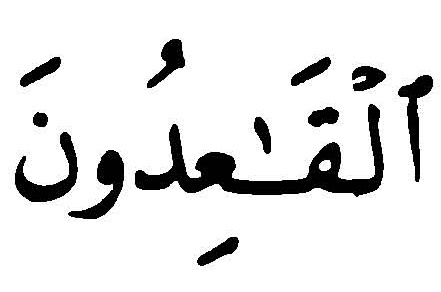 ٱلْقَـٰعِدُونَ